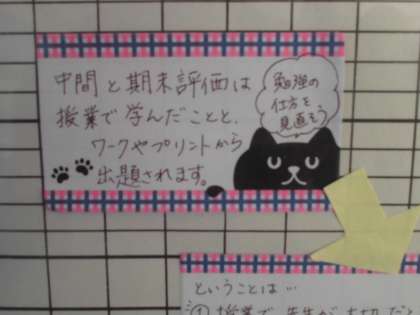 中間と期末評価は
授業で学んだことと、
ワークやプリントから
出題されます。
勉強の
仕方を
見直そう
ということは…
①授業で先生が大切だ